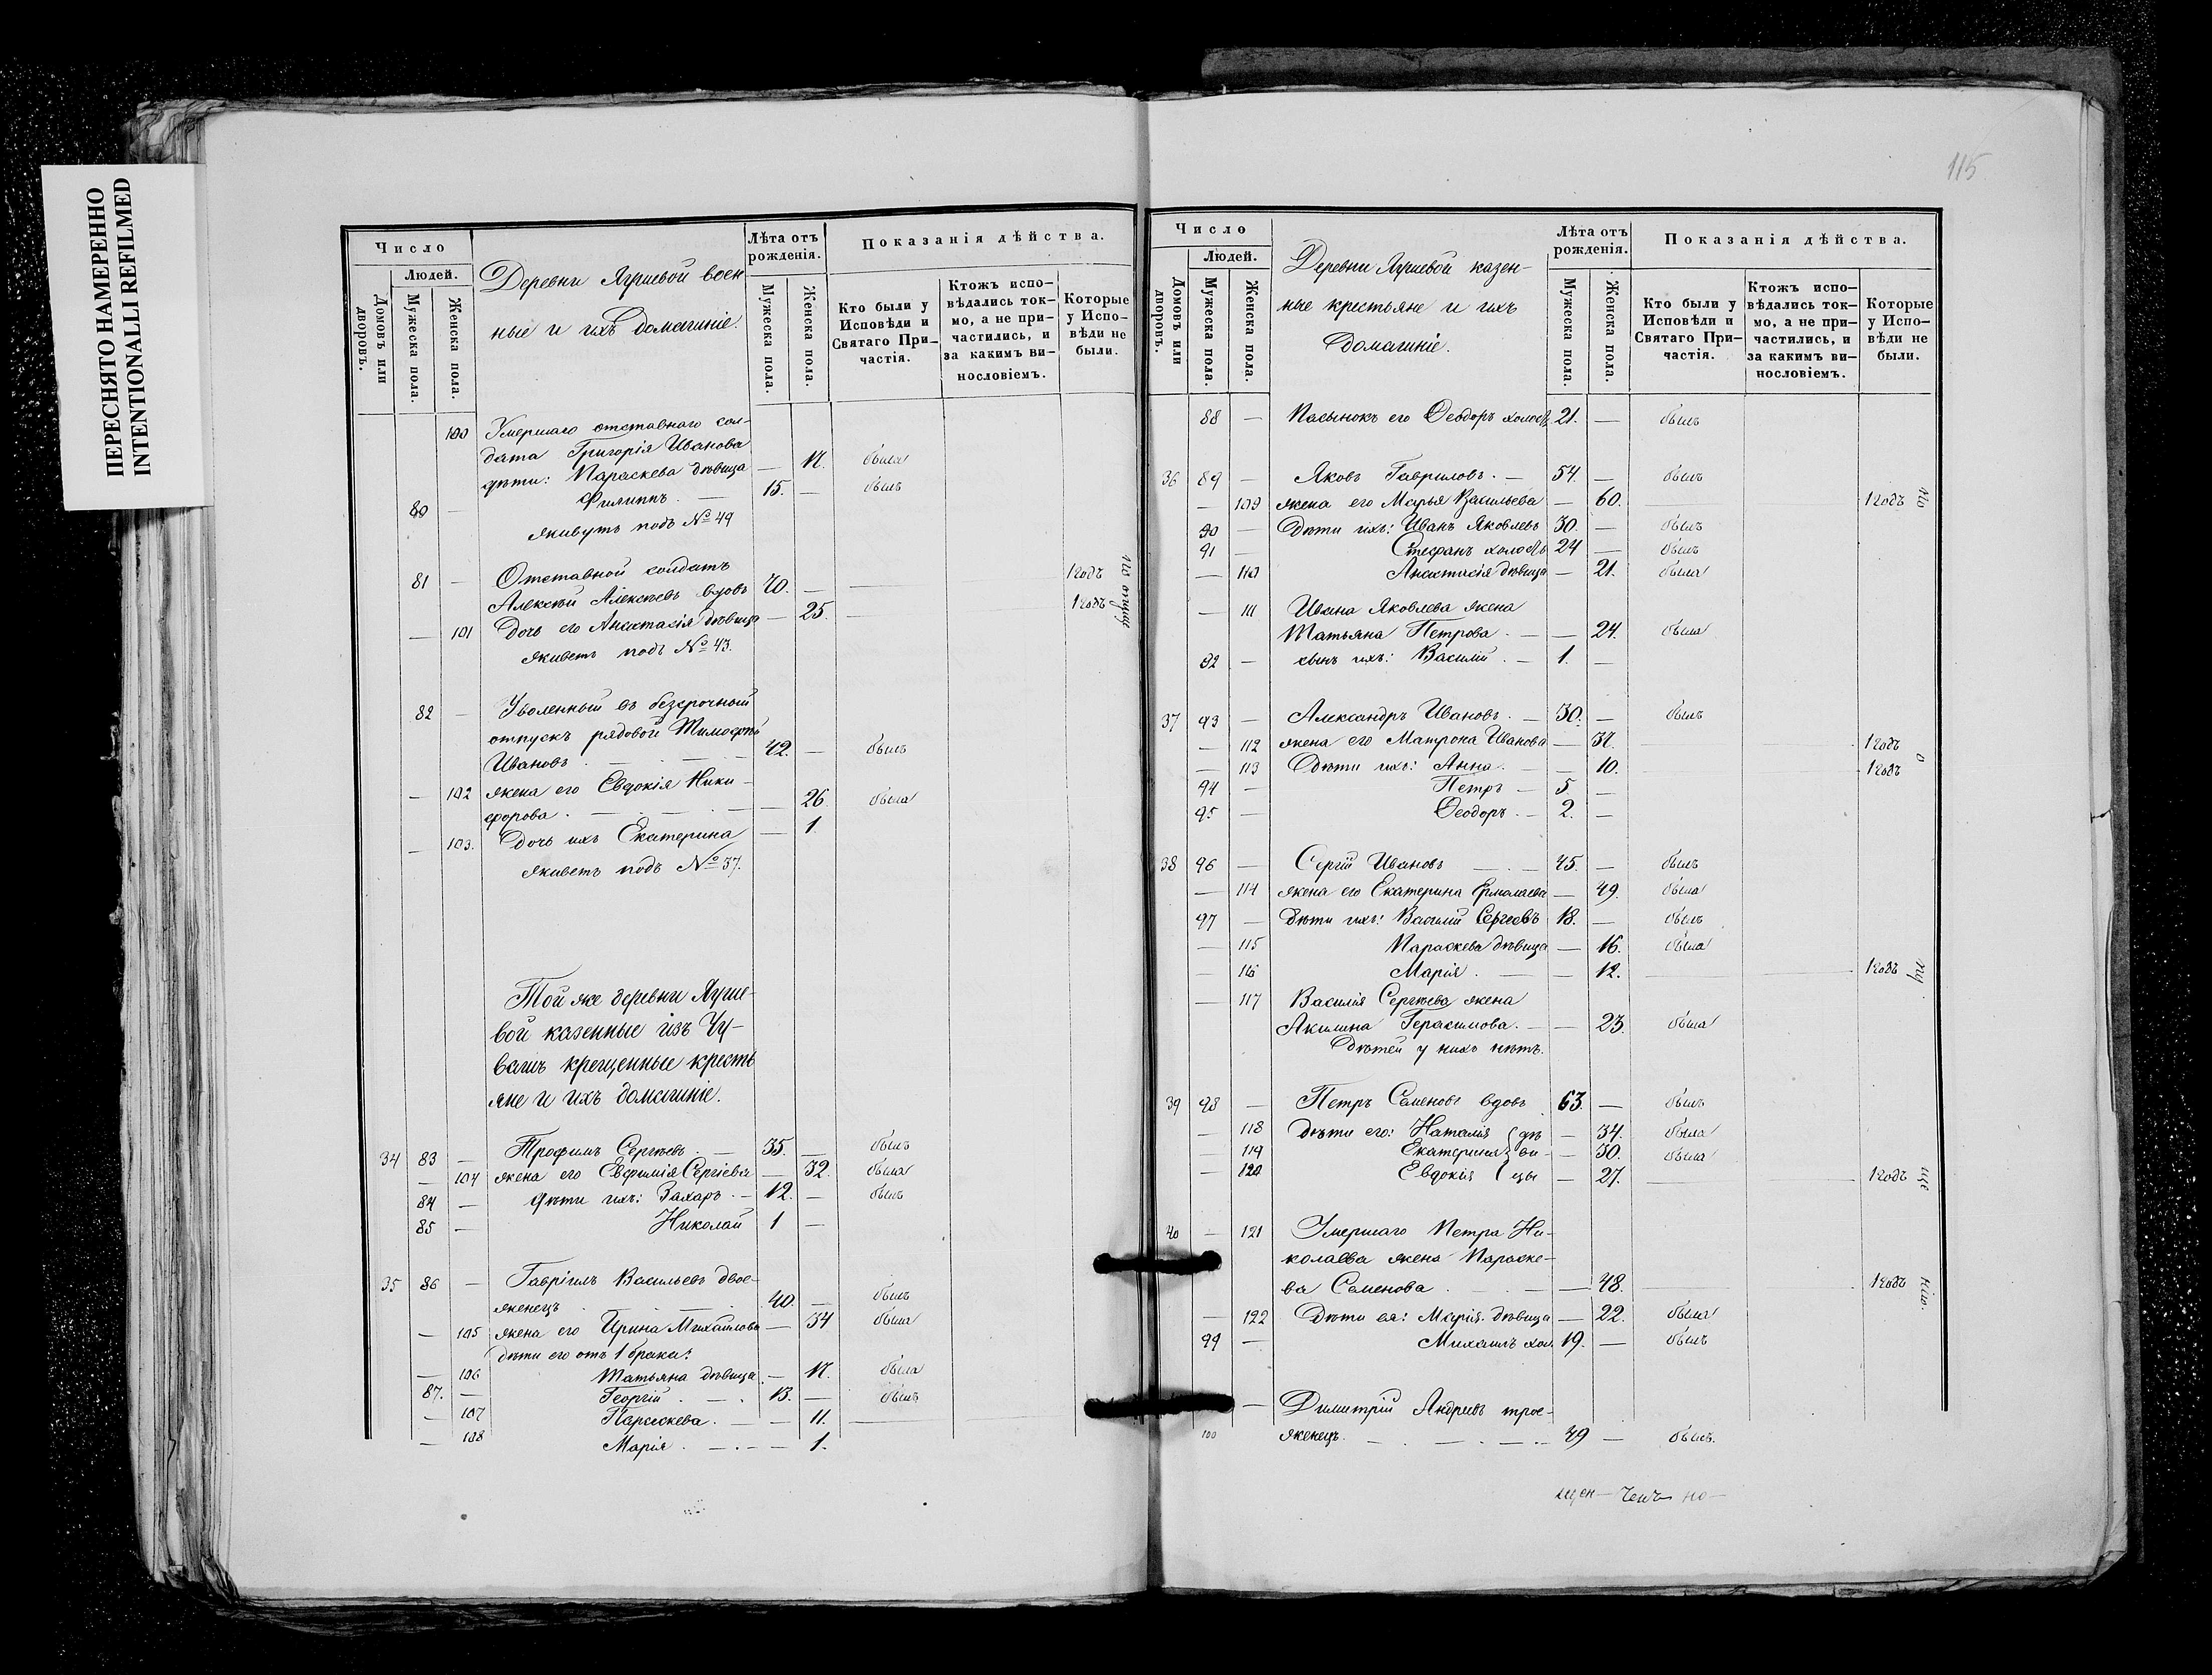 ПЕРЕСНЯТО НАМЕРЕННО
INTENTIONALLI REFILMED
Число
Людей.
Домовъ или дворовъ.
Мужеска пола.
Женска пола.
Деревни Ягуневой воен
ные и ихъ домашніе.
Лѣта отъ рожденія.
Мужеска пола.
Женска пола.
Показанія дѣйства.
Кто были у Исповѣди и Святаго При-частія.
Ктожъ испо-вѣдались ток-мо, а не при-частились, и за какимъ ви-нословіемъ.
Которые у Испо-вѣди не были.
100 Умершаго отставнаго сол-
дата Григорія Иванова
дѣти: Параскева дѣвица — 17. была
80 — Филиппъ. — 15. — былъ
живутъ подъ № 49
81 — Отставной солдатъ
Алексѣй Алексѣевъ вдовъ 70. — 1 годъ
— 101 Дочь его Анастасія дѣвица — 25. 1 годъ
живетъ подъ № 43.
по опущ
82 — Уволенный въ безсрочный
отпускъ рядовой Тимофѣй
Ивановъ 42. — былъ
— 102 жена его Евдокія Ники-
форова. — 26. была
— 103. Дочь ихъ Екатерина — 1.
живетъ подъ № 37.
Той же деревни Ягуне-
вой казенные изъ Чу-
вашъ крещенные кресть
яне и ихъ домашніе.
34 83 — Трофимъ Сергѣевъ. — 35. — былъ
— 104 жена его Евфимія Сергіева — 32. была
84 — дѣти ихъ: Захаръ. — 12. — былъ
85 — Николай 1 —
35 86 — Гавріилъ Васильевъ двое-
женецъ 40. — былъ
— 105 жена его Ирина Михайлова — 34 была
дѣти его отъ 1 брака:
— 106 Татьяна дѣвица. — 17. была
87. — Георгій. — 13. — былъ
— 107 Параскева. — 11.
— 108 Марія. — 1.
115
Число
Людей.
Домовъ или дворовъ.
Мужеска пола.
Женска пола.
Деревни Ягуневой казен-
ные крестьяне и ихъ
домашніе.
Лѣта отъ рожденія.
Мужеска пола.
Женска пола.
Показанія дѣйства.
Кто были у Исповѣди и Святаго При-частія.
Ктожъ испо-вѣдались ток-мо, а не при-частились, и за какимъ ви-нословіемъ.
Которые у Испо-вѣди не были.
88 — Пасынокъ его Ѳеодоръ холостъ 21. — былъ
36 89 — Яковъ Гавриловъ. — 54. — былъ
— 109 жена его Марья Васильева — 60. 1 годъ по
90 — Дѣти ихъ: Иванъ Яковлевъ 30. — былъ
91 — Стефанъ холостъ 24 — былъ
— 110 Анастасія дѣвица — 21. была
— 111 Ивана Яковлева жена
Татьяна Петрова. — 24. была
92 — сынъ ихъ: Василій. — 1. —
37 93 — Александръ Ивановъ. — 30. — былъ
— 112 жена его Матрона Иванова — 37. 1 годъ о
— 113 Дѣти ихъ: Анна. — 10. 1 годъ
94 — Петръ — 5. —
95 — Ѳеодоръ. — 2. —
38 96 — Сергій Ивановъ — 45. — былъ
— 114 жена его Екатерина Ермолаева — 49. была
97 — Дѣти ихъ: Василій Сергеевъ 18. — былъ
— 115 Параскева дѣвица — 16. была
— 116 Марія. — 12. 1 годъ пу
— 117 Василія Сергѣева жена
Акилина Герасимова. — 23. была
Дѣтей у нихъ нѣтъ.
39 98 — Петръ Семеновъ вдовъ 63. — былъ
— 118 Дѣти его: Наталія дѣ — 34. была
— 119 Екатерина ви- — 30. была
— 120 Евдокія цы — 27. 1 годъ ще
40 — 121 Умершаго Петра Ни-
колаева жена Параске-
ва Семенова — 48. 1 годъ нію.
— 122 Дѣти ея: Марія дѣвица — 22. была
99 — Михаилъ хол. 19. — былъ
— Димитрій Андреевъ трое-
100 женецъ. 49 — былъ.
но—